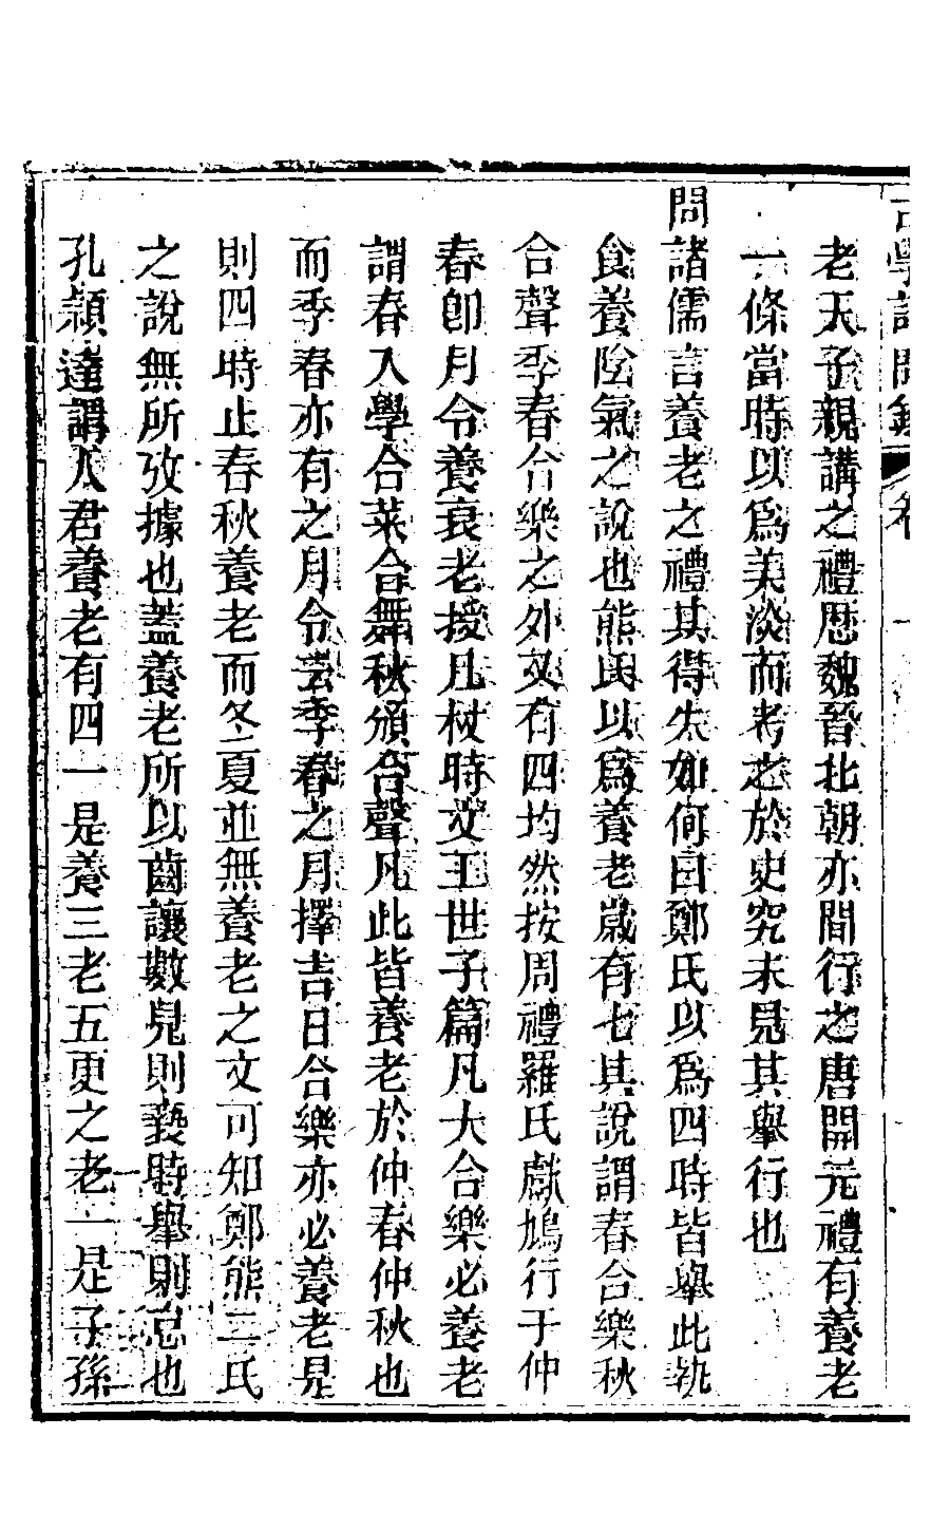 老天子親講之禮歷魏晉北朝亦間行之唐開元禮有養老
一條當時以爲美淡而考之於史究未見其舉行也
問諸儒言養老之禮其得失如何曰鄭氏以爲四時皆舉此執
食養陰氣之說也熊氏以爲養老歲有七其說謂春合樂秋
合聲季春合樂之外又有四均然按周禮羅氏獻鳩行于仲
春卽月令養衰老授几杖時文王世子篇凡大合樂必養老
謂春入學合菜合舞秋頒合聲凡此皆養老於仲春仲秋也
而季春亦有之月令云季春之月擇吉日合樂亦必養老是
則四時止春秋養老而冬夏並無養老之文可知鄭熊二氏
之說無所攷據也蓋養老所以齒讓數見則褻時舉則忘也
孔穎達謂人君養老有四一是養三老五更之老一是子孫